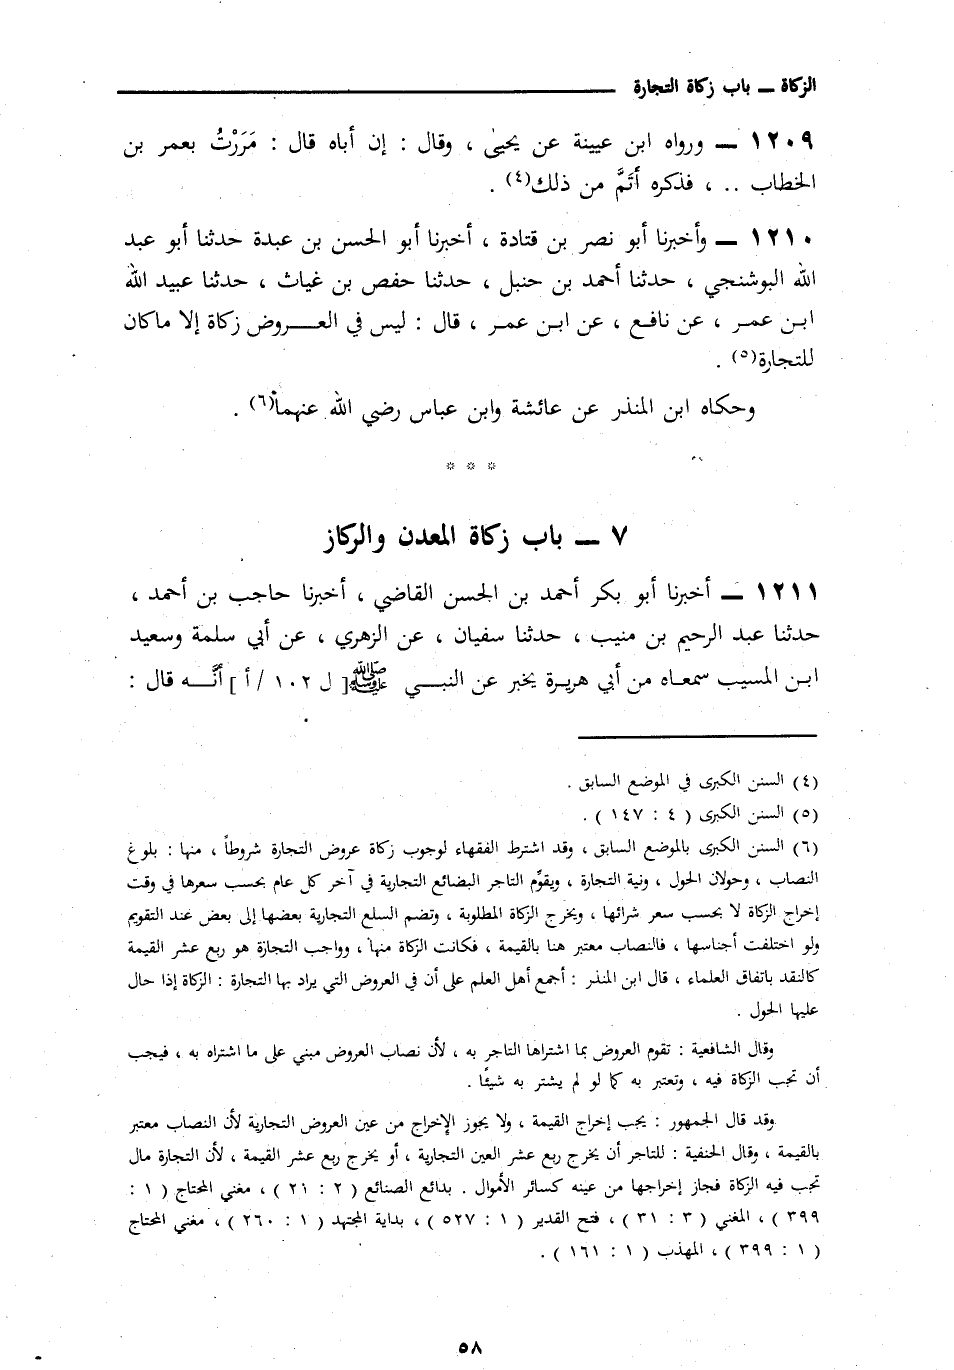 الزكاة ــ باب زكاة التجارة
١٢٠٩ ــ ورواه ابن عيينة عن يحيىٰ ، وقال : إن أباه قال : مَرَرْتُ بعمر بن
الخطاب .. ، فذكره أَتَمَّ من ذلك(٤) .
١٢١٠ ــ وأخبرنا أبو نصر بن قتادة ، أخبرنا أبو الحسن بن عبدة حدثنا أبو عبد
الله البوشنجي ، حدثنا أحمد بن حنبل ، حدثنا حفص بن غياث ، حدثنا عبيد الله
ابـن عمـر ، عن نافـع ، عن ابـن عمـر ، قال : ليس في العـــروض زكاة إلا ماكان
للتجارة(٥) .
وحكاه ابن المنذر عن عائشة وابن عباس رضي الله عنهما(٦) .
* * *
٧ ــ باب زكاة المعدن والركاز
١٢١١ ــ أخبرنا أبو بكر أحمد بن الحسن القاضي ، أخبرنا حاجب بن أحمد ،
حدثنا عبد الرحيم بن منيب ، حدثنا سفيان ، عن الزهري ، عن أبي سلمة وسعيد
ابـن المسيب سمعـاه من أبي هريـرة يخبر عن النبـــي ﷺ[ ل ١٠٢ / أ ] أنَّـــه قال :
(٤) السنن الكبرى في الموضع السابق .
(٥) السنن الكبرى ( ٤ : ١٤٧ ) .
(٦) السنن الكبرى بالموضع السابق ، وقد اشترط الفقهاء لوجوب زكاة عروض التجارة شروطاً ، منها : بلوغ
النصاب ، وحولان الحول ، ونية التجارة ، ويقوِّم التاجر البضائع التجارية في آخر كل عام بحسب سعرها في وقت
إخراج الزكاة لا بحسب سعر شرائها ، ويخرج الزكاة المطلوبة ، وتضم السلع التجارية بعضها إلى بعض عند التقويم
ولو اختلفت أجناسها ، فالنصاب معتبر هنا بالقيمة ، فكانت الزكاة منها ، وواجب التجارة هو ربع عشر القيمة
كالنقد باتفاق العلماء ، قال ابن المنذر : أجمع أهل العلم على أن في العروض التي يراد بها التجارة : الزكاة إذا حال
عليها الحول .
وقال الشافعية : تقوم العروض بما اشتراها التاجر به ، لأن نصاب العروض مبني على ما اشتراه به ، فيجب
أن تجب الزكاة فيه ، وتعتبر به كما لو لم يشتر به شيئًا .
وقد قال الجمهور : يجب إخراج القيمة ، ولا يجوز الإخراج من عين العروض التجارية لأن النصاب معتبر
بالقيمة ، وقال الحنفية : للتاجر أن يخرج ربع عشر العين التجارية ، أو يخرج ربع عشر القيمة ، لأن التجارة مال
تجب فيه الزكاة فجاز إخراجها من عينه كسائر الأموال . بدائع الصنائع ( ٢ : ٢١ ) ، مغني المحتاج ( ١ :
٣٩٩ ) ، المغني ( ٣ : ٣١ ) ، فتح القدير ( ١ : ٥٢٧ ) ، بداية المجتهد ( ١ : ٢٦٠ ) ، مغني المحتاج
( ١ : ٣٩٩ ) ، المهذب ( ١ : ١٦١ ) .
٥٨